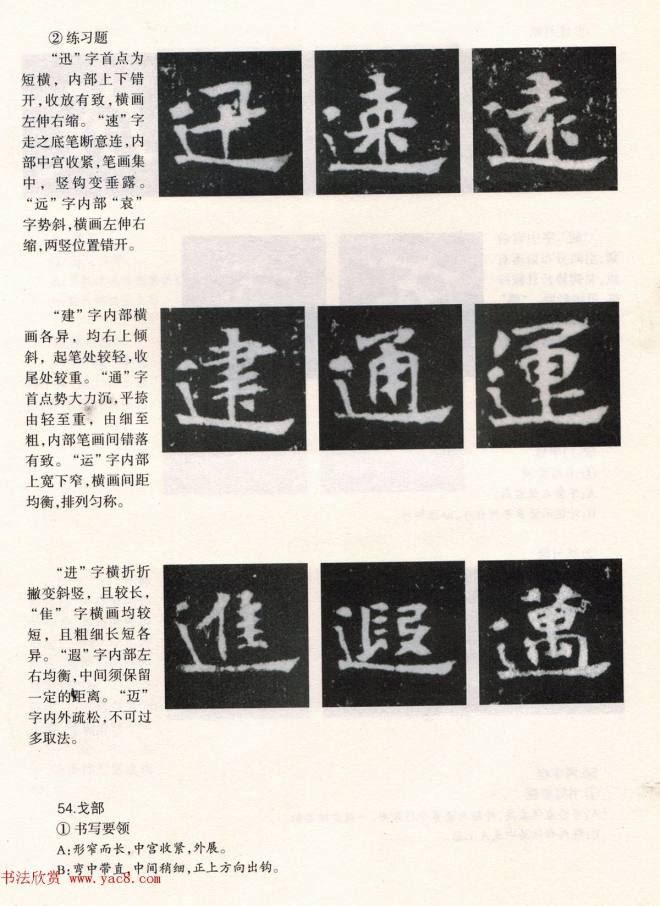 ② 练习题
“迅”字首点为
短横，内部上下错
开，收放有致，横画
左伸右缩。“速”字
走之底笔断意连，内
部中宫收紧，笔画集
中，竖钩变垂露。
“远”字内部“袁”
字势斜，横画左伸右
缩，两竖位置错开。
迅 速 遠
“建”字内部横
画各异，均右上倾
斜，起笔处较轻，收
尾处较重。“通”字
首点势大力沉，平捺
由轻至重，由细至
粗，内部笔画间错落
有致。“运”字内部
上宽下窄，横画间距
均衡，排列匀称。
建 通 運
“进”字横折折
撇变斜竖，且较长，
“隹”字横画均较
短，且粗细长短各
异。“遐”字内部左
右均衡，中间须保留
一定的距离。“迈”
字内外疏松，不可过
多取法。
進 遐 邁
54.戈部
① 书写要领
A：形窄而长，中宫收紧，外展。
B：弯中带直，中间稍细，正上方向出钩。
书法欣赏 www.yac8.com